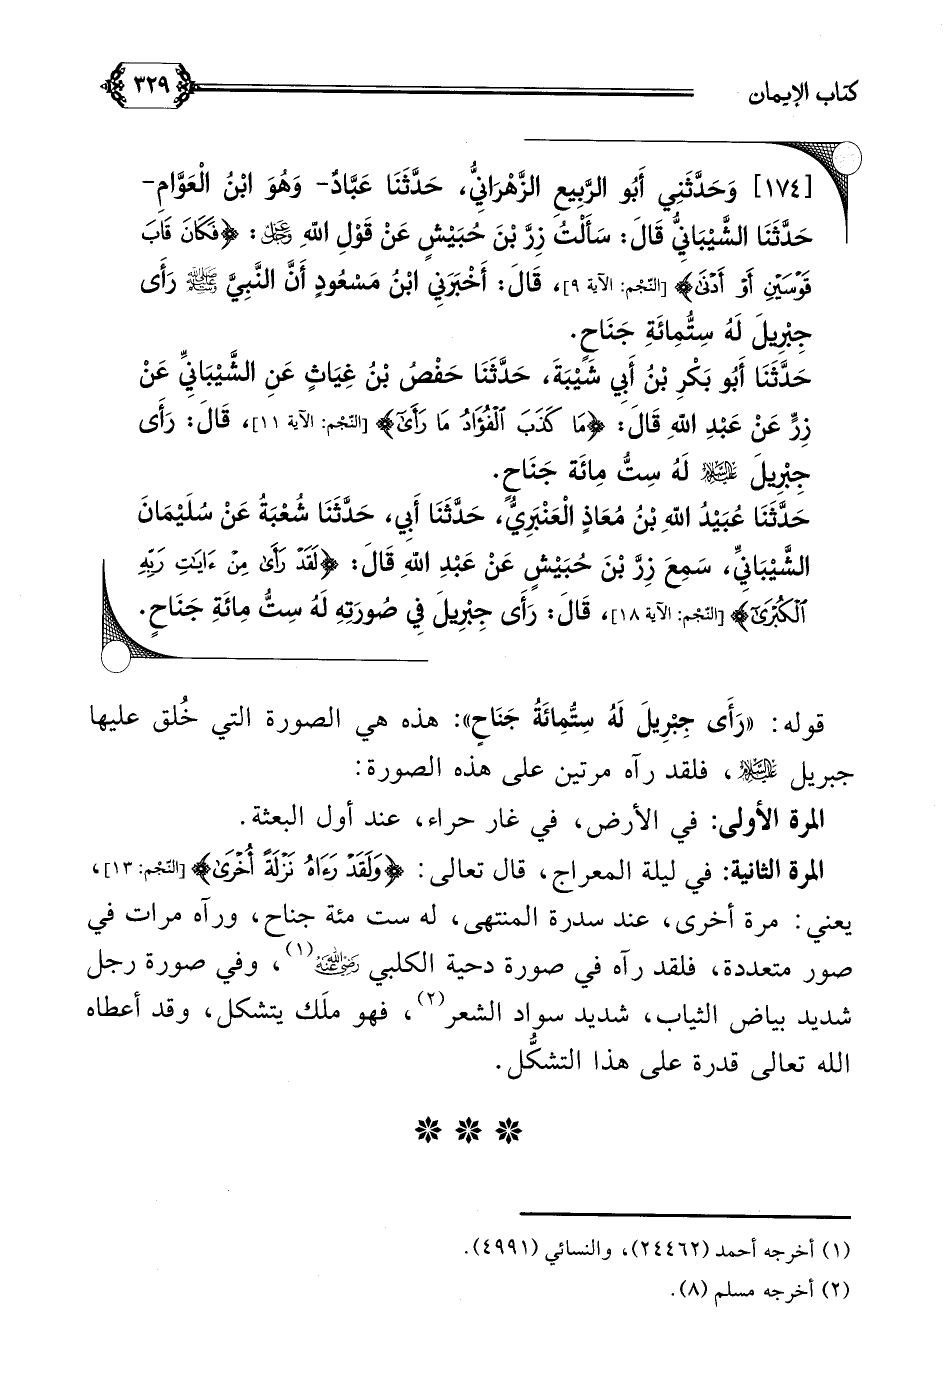 كتاب الإيمان
٣٢٩
[١٧٤] وَحَدَّثَنِي أَبُو الرَّبِيعِ الزَّهْرَانِيُّ، حَدَّثَنَا عَبَّادٌ- وَهُوَ ابْنُ الْعَوَّامِ-
حَدَّثَنَا الشَّيْبَانِيُّ قَالَ: سَأَلْتُ زِرَّ بْنَ حُبَيْشٍ عَنْ قَوْلِ اللهِ عز وجل: ﴿فَكَانَ قَابَ
قَوْسَيْنِ أَوْ أَدْنَىٰ﴾ [النّجْم: الآية ٩]، قَالَ: أَخْبَرَنِي ابْنُ مَسْعُودٍ أَنَّ النَّبِيَّ ﷺ رَأَى
جِبْرِيلَ لَهُ سِتُّمِائَةِ جَنَاحٍ.
حَدَّثَنَا أَبُو بَكْرِ بْنُ أَبِي شَيْبَةَ، حَدَّثَنَا حَفْصُ بْنُ غِيَاثٍ عَنِ الشَّيْبَانِيِّ عَنْ
زِرٍّ عَنْ عَبْدِ اللهِ قَالَ: ﴿مَا كَذَبَ ٱلْفُؤَادُ مَا رَأَىٰٓ﴾ [النّجْم: الآية ١١]، قَالَ: رَأَى
جِبْرِيلَ عليه السلام لَهُ سِتُّ مِائَة جَنَاحٍ.
حَدَّثَنَا عُبَيْدُ اللهِ بْنُ مُعَاذٍ الْعَنْبَرِيُّ، حَدَّثَنَا أَبِي، حَدَّثَنَا شُعْبَةُ عَنْ سُلَيْمَانَ
الشَّيْبَانِيِّ، سَمِعَ زِرَّ بْنَ حُبَيْشٍ عَنْ عَبْدِ اللهِ قَالَ: ﴿لَقَدْ رَأَىٰ مِنْ ءَايَٰتِ رَبِّهِ
ٱلْكُبْرَىٰٓ﴾ [النّجْم: الآية ١٨]، قَالَ: رَأَى جِبْرِيلَ فِي صُورَتِهِ لَهُ سِتُّ مِائَةِ جَنَاحٍ.
قوله: «رَأَى جِبْرِيلَ لَهُ سِتُّمِائَةُ جَنَاحٍ»: هذه هي الصورة التي خُلق عليها
جبريل عليه السلام، فلقد رآه مرتين على هذه الصورة:
المرة الأولى: في الأرض، في غار حراء، عند أول البعثة.
المرة الثانية: في ليلة المعراج، قال تعالى: ﴿وَلَقَدْ رَءَاهُ نَزْلَةً أُخْرَىٰ﴾ [النّجْم: ١٣]،
يعني: مرة أخرى، عند سدرة المنتهى، له ست مئة جناح، ورآه مرات في
صور متعددة، فلقد رآه في صورة دحية الكلبي رضي الله عنه(١)، وفي صورة رجل
شديد بياض الثياب، شديد سواد الشعر(٢)، فهو ملَك يتشكل، وقد أعطاه
الله تعالى قدرة على هذا التشكُّل.
(١) أخرجه أحمد (٢٤٤٦٢)، والنسائي (٤٩٩١).
(٢) أخرجه مسلم (٨).